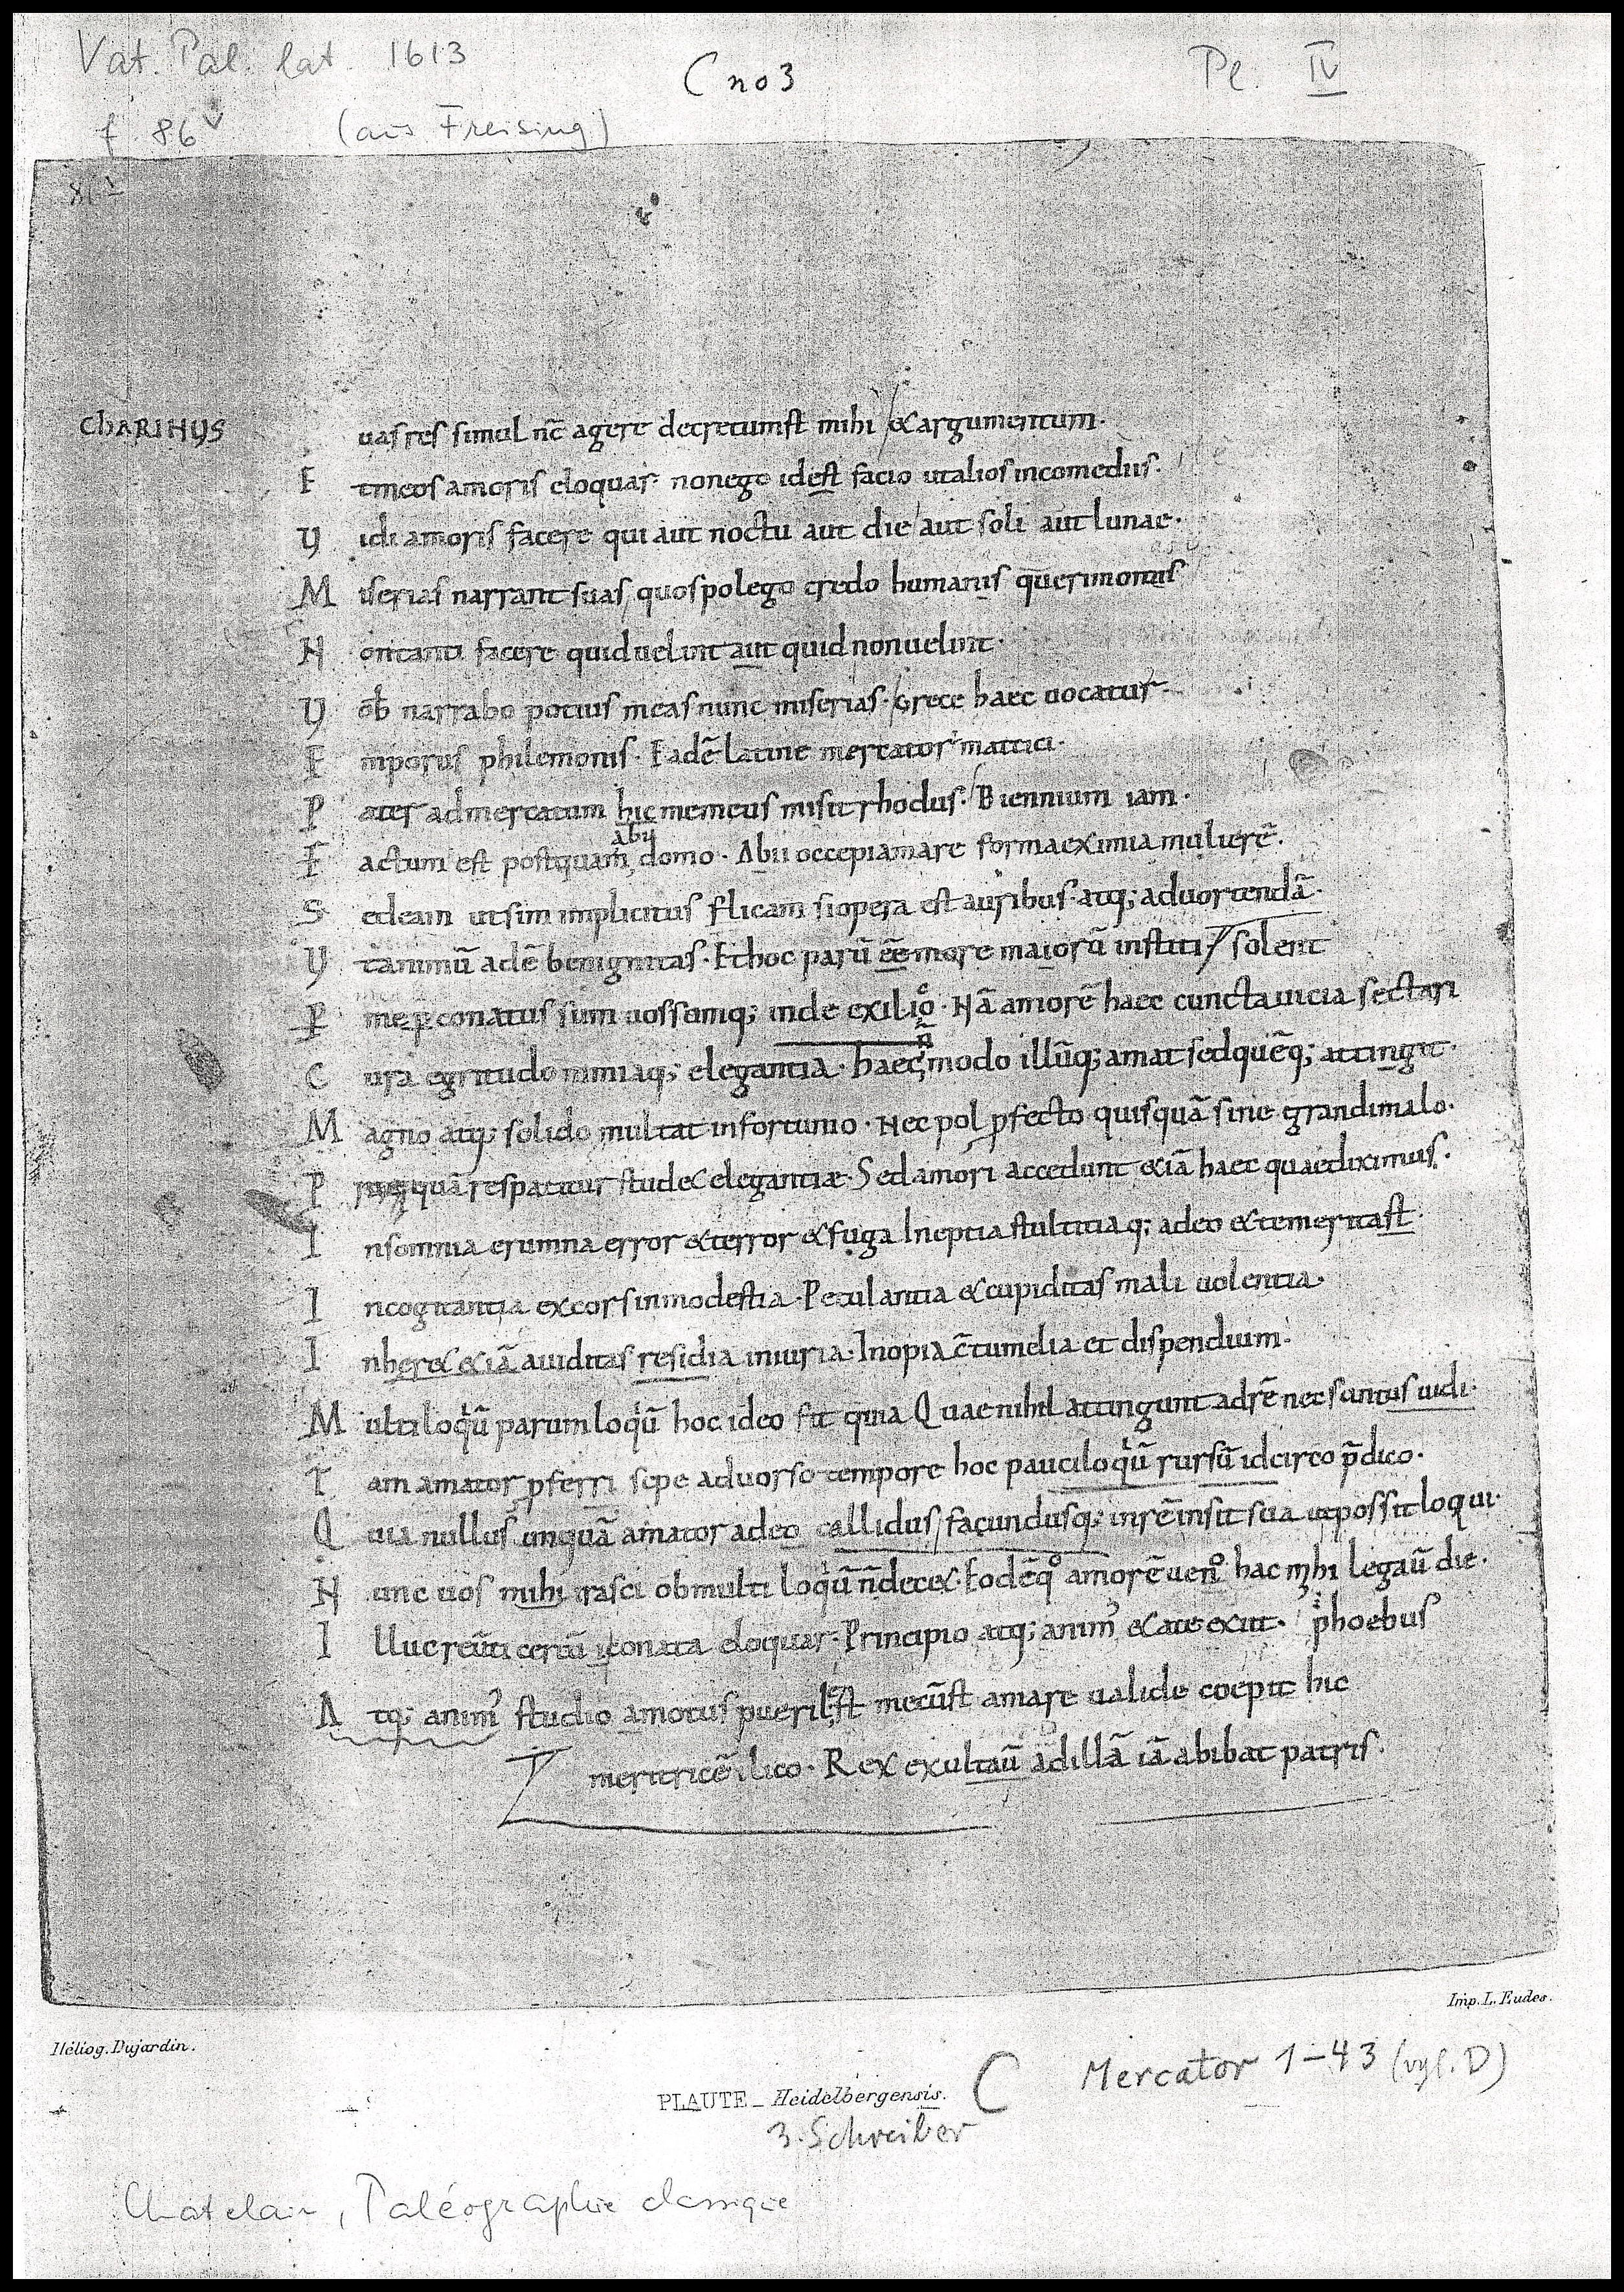 Vat. Pal. lat. 1613
C no 3
Pl. IV
f 86v (aus Freising)
CHARINUS uas res simul nc̄ agere decretumst mihi & argumentum·
E tmeos amoris eloquar· nonego idest facio utalios incomediis·
V idi amoris facere qui aut noctu aut die aut soli aut lunae·
M iserias narrant suas quospolego credo humanis querimoniis
N ontanti facere quiduelint aut quidnonuelint·
V ob̄ narrabo potius meas nunc miserias· Grece haec uocatur·
E mporus philemonis· Eadē latine mercator mattici·
P ater admercatum hic memeus misit rhodus· Biennium iam·
abii
F actum est postquam domo· Abii occepiamare forma eximia mulierē·
S edeam utsim implicitus flicam siopera est auribus· atq; aduortendā·
V tanimū adē benignitas· Ethoc parū ēē more maiorū institi solent
P me p conatus sum uossumq; inde exilio· Nā amorē haec cuncta uicia sectari
C ura egritudo nimiaq; elegantia· haec n̄ modo illūq; amat sedquēq; attingit·
M agno atq; solido multat infortunio· Nec pol pfecto quisquā sine grandimalo·
P quā respatitur stud& elegantiæ· Sed amori accedunt &iā haec quaediximus·
I nsomnia erumna error &terror &fuga Ineptia stultitiaq; adeo &temeritast·
I ncogitantia excors inmodestia· Petulantia &cupiditas mali uolentia·
I nher& &iā auiditas residia iniuria· Inopia c̄tumelia et dispendium·
M ultiloqiū parumloqiū hoc ideo fit quia Quae nihil attingunt adrē necsuntus uidi·
T am amator pferri sepe aduorso tempore hoc pauciloqiū rursū idcirco p̄dico·
Q uia nullus unquā amator adeo callidus facundusq; inrē insit sua utpossit loqui·
N unc uos mihi irasci obmulti loqiū n̄ dec&· Eodēqo amorē uen hac mihi legaū die·
I lluc reūti certū conata eloquar· Principio atq; anim' &ate exiit· phoebus
A tq; anim' studio amotus puerilest mecūst amare ualide coepit hic
meritricē ilico· Rex exultaū adillā iā abibat patris·
Héliog. Dujardin.
Imp. L. Eudes.
PLAUTE _ Heidelbergensis.
C Mercator 1–43 (vgl. D)
3. Schreiber
Chatelain, Paléographie classique